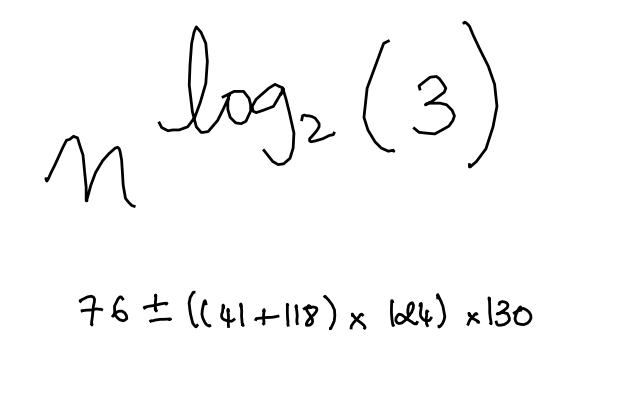 n^{log_2(3)}
76 ± ((41+118) × 124) × 130